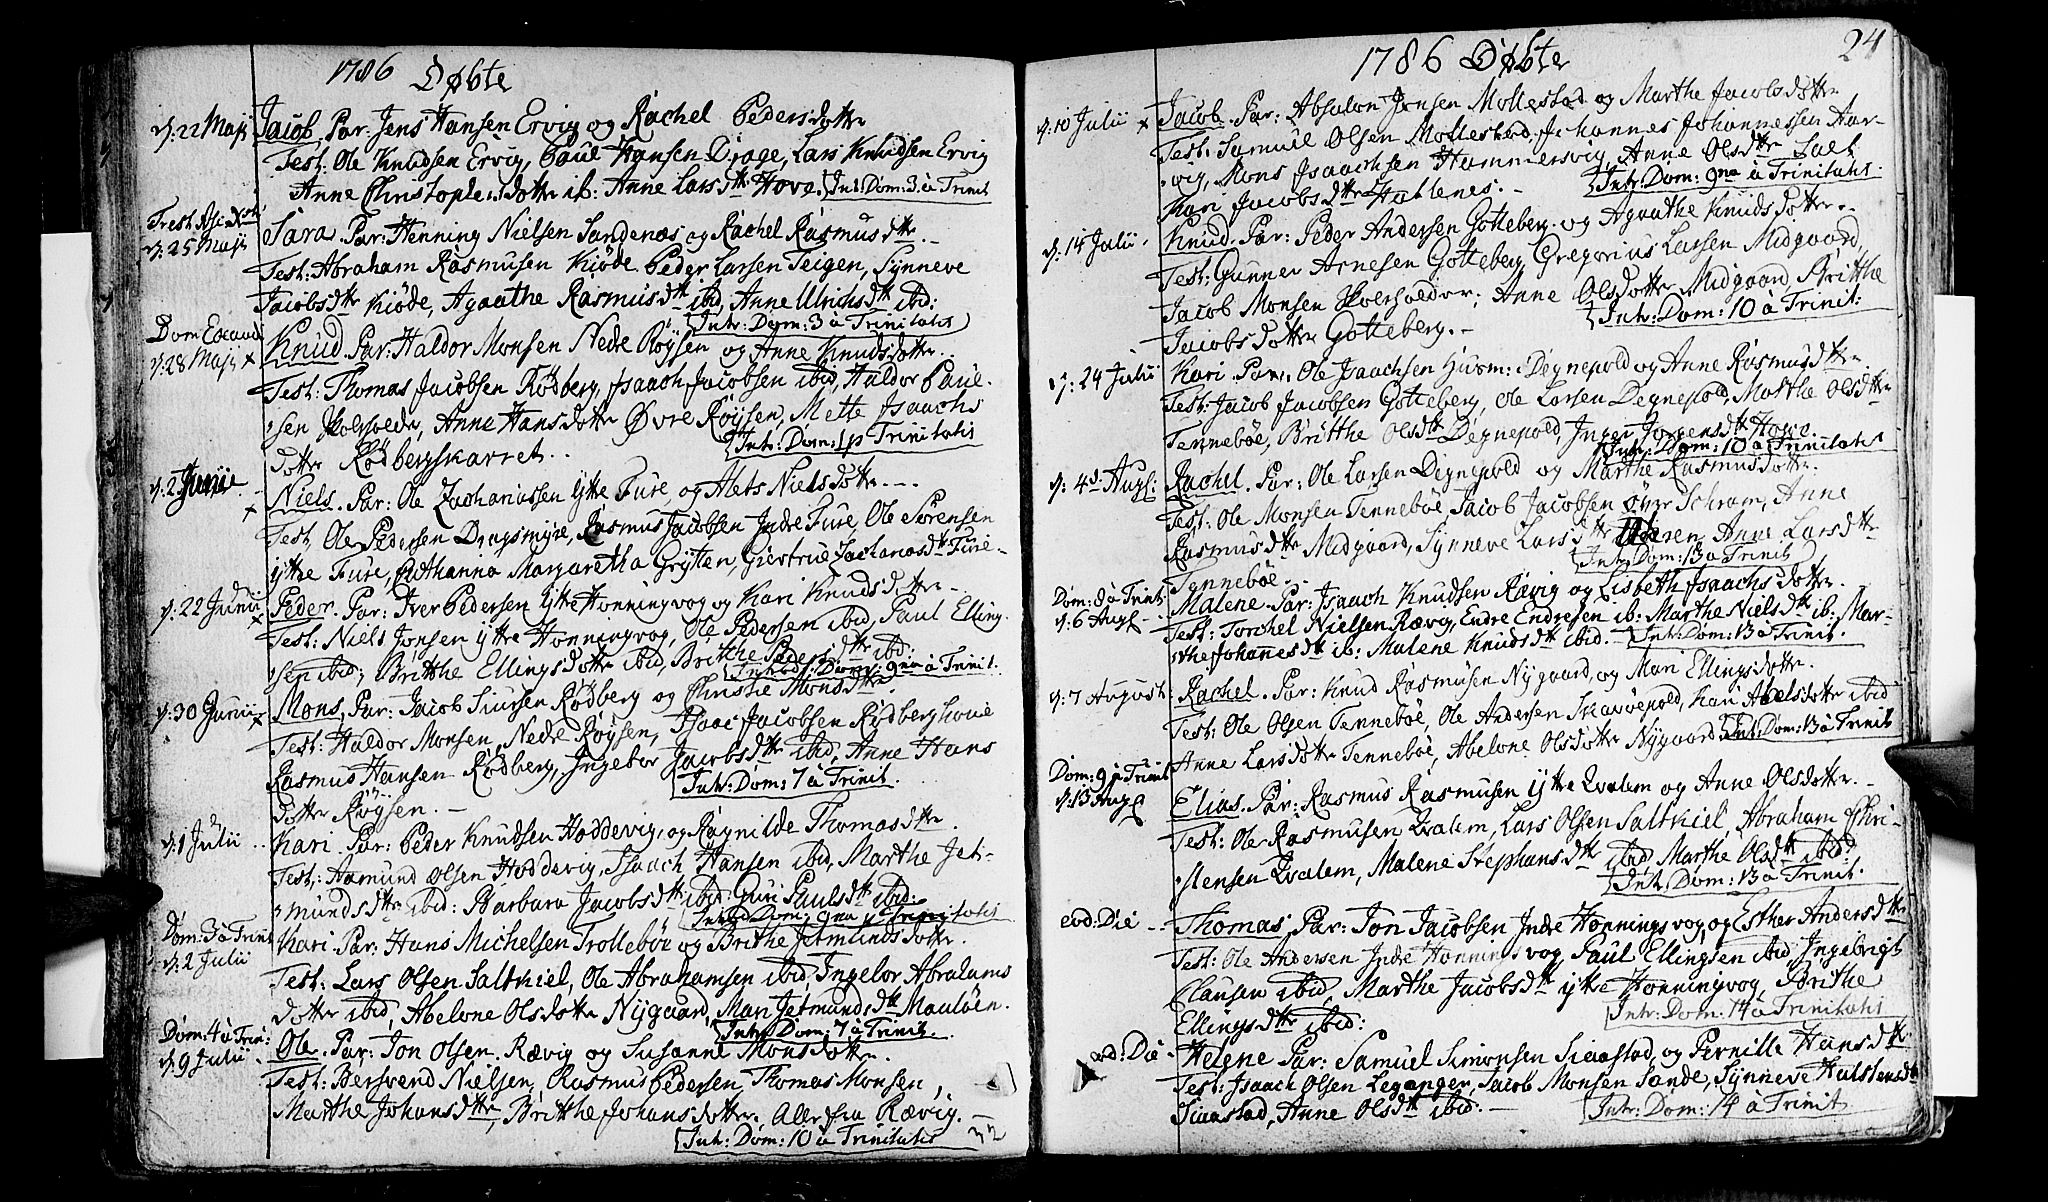 1786 Døbte
d: 22 Maji Jacob. Par: Jens Hansen Ervig og Rachel Pedersdotter
Test: Ole Knudsen Ervig, Paul Hansen Drage, Lars Knudsen Ervig
Anne Christophersdotter ib: Anne Larsdttr Hove. Intr: Dom: 3 à Trinit
Fest: Asc: Xsti
d: 25 Maji Sara. Par: Henning Nielsen Sandenæs og Rachel Rasmusdttr.
Test: Abraham Rasmusen Kiøde, Peder Larsen Teigen, Synneve
Jacobsdttr Kiøde, Agaathe Rasmusdttr ibid, Anne Ulrichsdttr ibid:
Intr: Dom: 3 à Trinitatis
Dom Exaudi
d: 28 Maji × Knud. Par: Haldor Monsen Nedre Røysen og Anne Knudsdotter.
Test: Thomas Jacobsen Rødberg, Isaach Jacobsen ibid, Haldor Paul-
sen Skolsvede, Anne Hansdotter Øvre Røysen, Mette Isaachs
dotter Rødbergskarret. Intr: Dom: 1 p Trinitatis
d: 2 Junii × Niels. Par: Ole Zachariassen Ytre Fure og Alets Nielsdotter.
Test, Ole Pedersen Dragsmyre, Rasmus Jacobsen Indre Fure, Ole Sørensen
ytre Fure, Cathanna Margaretha Grytten, Giertrue Zachariasdttr Fure
d: 22 Junii × Peder. Par: Iver Pedersen Ytre Honningvog og Kari Knudsdotter
Test: Niels Jonsen ytre Honningvog, Ole Pedersen ibid, Paul Elling
sen ibid; Britthe Ellingsdotter ibid, Britthe Pedersdttr ibid:
Introd: Dom: 9na à Trinit.
d: 30 Junii × Mons, Par: Jacob Siursen Rødberg og Christie Monsdttr.
Test: Haldor Monsen, Nedre Røysen, Isaac Jacobsen Rødberghoue
Rasmus Hansen Rødberg, Ingebor Jacobsdttr ibid, Anne Hans
dotter Røysen. Intr: Dom: 7 à Trinit.
d: 1 Julii Kari. Par: Peder Knudsen Hoddevig, og Ragnilde Thomasdttr.
Test: Aamund Olsen Hoddevig, Isaach Hansen ibid, Marthe Jet-
mundsdttr ibid: Barbara Jacobsdttr ibid Guri Paulsdttr ibid:
Introd Dom: 9na p Trinitatis
Dom: 3 à Trinit
d: 2 Julii Kari. Par: Hans Michelsen Trollebøe og Brithe Jetmundsdotter.
Test: Lars Olsen Saltkiel, Ole Abrahamsen ibid, Ingebor Abrahams
dotter ibid, Abelone Olsdotter Nygaard, Mari Jetmundsdttr Mauløen.
Intr: Dom: 7 à Trinit.
Dom: 4 à Trin:
d: 9 Julii Ole. Par: Jon Olsen Rævig og Susanne Monsdotter.
Test: Bersvend Nielsen, Rasmus Pedersen, Thomas Monsen,
Marthe Johansdttr, Britthe Johansdotter. Alle fra Rævig.
Intr: Dom: 10 à Trinitatis
1786 Døbte 24
d: 10 Julii × Jacob. Par: Absalon Jonsen Mollestad og Marthe Jacobsdotter
Test: Samuel Olsen Mollestad, Johannes Johannessen Aar-
vig, Mons Isaachsen Hammersvig, Anne Olsdttr Salt
Kari Jacobsdttr Hatlenes. Intr: Dom: 9na à Trinitatis.
d: 14 Julii. Knud. Par: Peder Andersen Gotteberg. og Agaathe Knudsdotter.
Test: Gunner Arnesen Gotteberg, Gregorius Larsen Midgaard,
Jacob Monsen Skorholdør; Anne Olsdotter Midgaard, Britthe
Jacobsdotter Gotteberg. Intr: Dom: 10 à Trinit:
d: 24 Julii Kari Par: Ole Isaachsen Husm: Degnepold og Anne Rasmusdttr
Test: Jacob Jacobsen Gotteberg, Ole Larsen Degnepold, Marthe Olsdttr
Tennebøe, Britthe Olsdttr Degnepold, Inger Jørgensdttr Hove
Intr: Dom: 10 à Trinitatis
d: 4de Aug: Rachel. Par: Ole Larsen Degnepold og Marthe Rasmusdotter.
Test: Ole Monsen Tennebøe, Jacob Jacobsen øvre Schram, Anne
Rasmusdttr Midgaard, Synneve Larsdttr Uderen, Anne Larsdttr
Tennebøe. Intr: Dom: 13 à Trinit
Dom: 8 à Trinit:
d: 6 Aug. Malene. Par: Isaach Knudsen Rævig og Lisbeth Isaachsdotter.
Test: Torchel Nielsen Rævig, Endre Endresen ib: Marthe Nielsdttr ib: Mar-
the Johanesdttr ib: Malene Knudsdttr ibid. Intr: Dom: 13 à Trinit.
d: 7 August Rachel. Par: Knud Rasmusen Nygaard, og Mari Ellingsdotter.
Test: Ole Olsen Tennebøe, Ole Andersen Skarvepold, Kari Abelsdotter ibid
Anne Larsdotter Tennebøe, Abelone Olsdotter Nygaard. Int: Dom: 13 à Trinit
Dom: 9 à Trinit
d: 13 Aug Elias. Par: Rasmus Rasmusen ytre Qvalem og Anne Olsdotter.
Test: Ole Rasmusen Qvalem, Lars Olsen Saltkiel, Abraham Chri-
stensen Qvalem, Malene Stephansdttr ibid Marthe Olsdttr ibid:
Int. Dom: 13 à Trinit.
eod: Die Thomas, Par: Jon Jacobsen Indre Honningsvog, og Esther Andersdttr
Test: Ole Andersen Indre Honningsvog, Paul Ellingsen ibid, Ingebrigt
Clausen ibid, Marthe Jacobsdttr ytre Honningvog, Brithe
Ellingsdttr ibid: Intr: Dom: 14 à Trinitatis
eod: Die Helene Par: Samuel Simonsen Siaastad, og Pernille Hansdttr
Test: Isaach Olsen Leganger, Jacob Monsen Sande, Synneve Halstensdttr
Siaastad, Anne Olsdttr ibid: Intr: Dom: 14 à Trinit